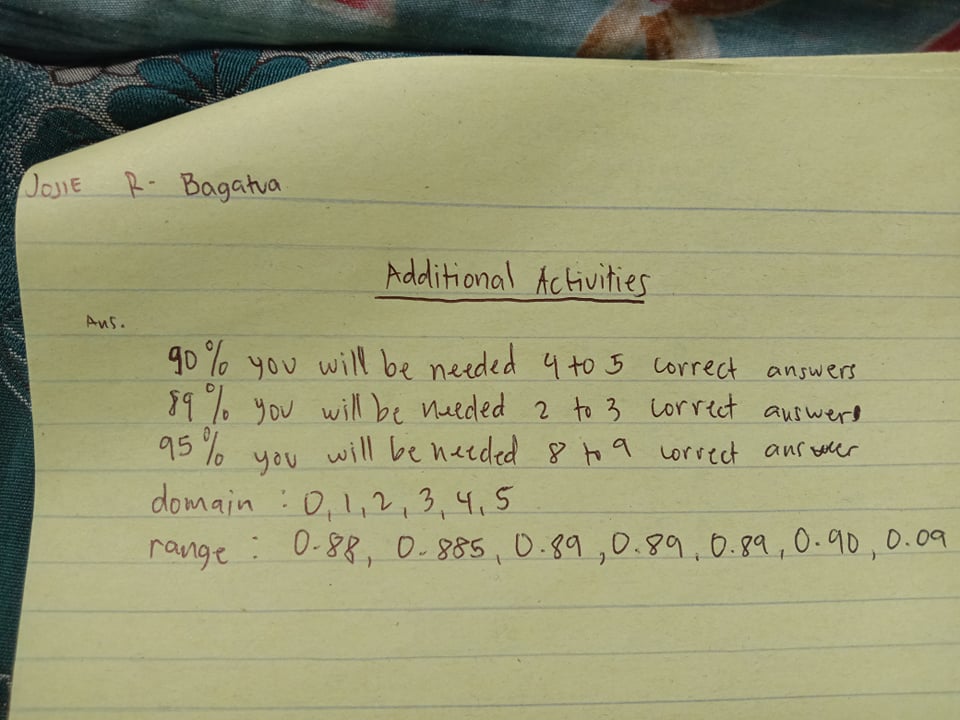 JOJIE R- Bagatua
Additional Activities
Ans.
90% you will be needed 4 to 5 correct answers
89% you will be needed 2 to 3 correct answers
95% you will be needed 8 to 9 correct answer
domain : 0, 1, 2, 3, 4, 5
range : 0.88, 0.885, 0.89, 0.89, 0.89, 0.90, 0.09